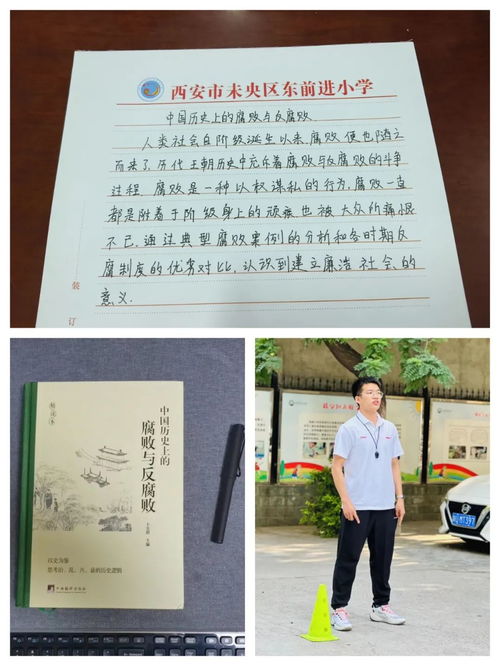 西安市未央区东前进小学
中国历史上的腐败与反腐败
人类社会自阶级诞生以来,腐败便也随之
而来了,历代王朝历史中充斥着腐败与反腐败的斗争
过程.腐败是一种以权谋私的行为,腐败一直
都是附着于阶级身上的顽疾也被大众所痛恨
不已,通过典型腐败案例的分析和各时期反
腐制度的优劣对比,认识到建立廉洁社会的
意义.
装
订
中国历史上的
腐败与反腐败
以史为鉴
思考治、乱、兴、衰的历史逻辑